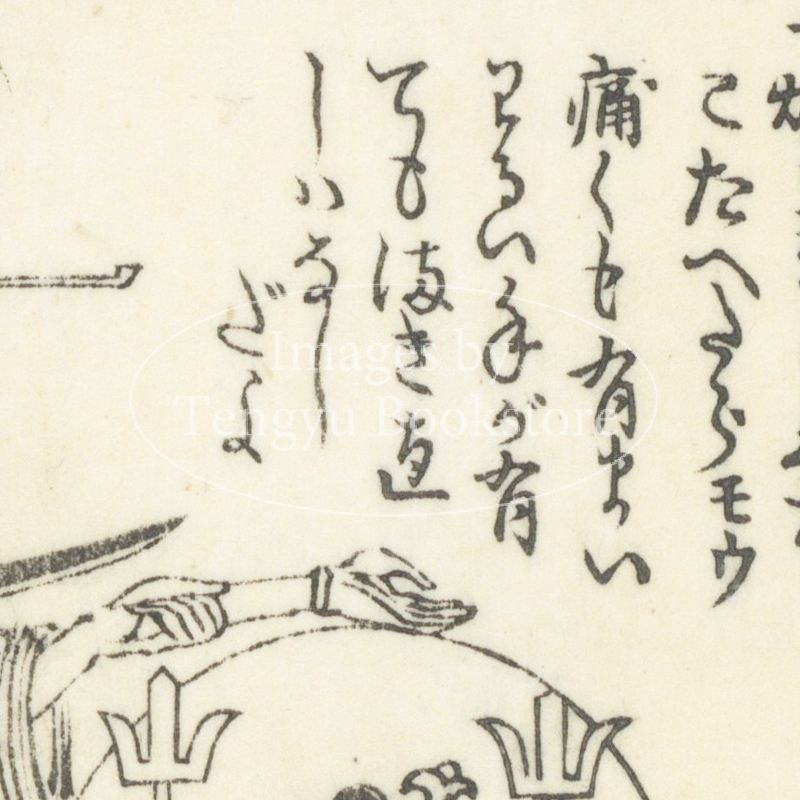 こたへたらモウ
痛くも有まい
わるい手が有
てもまき直
しハなし
だよ
Images by
Tengyu Bookstore